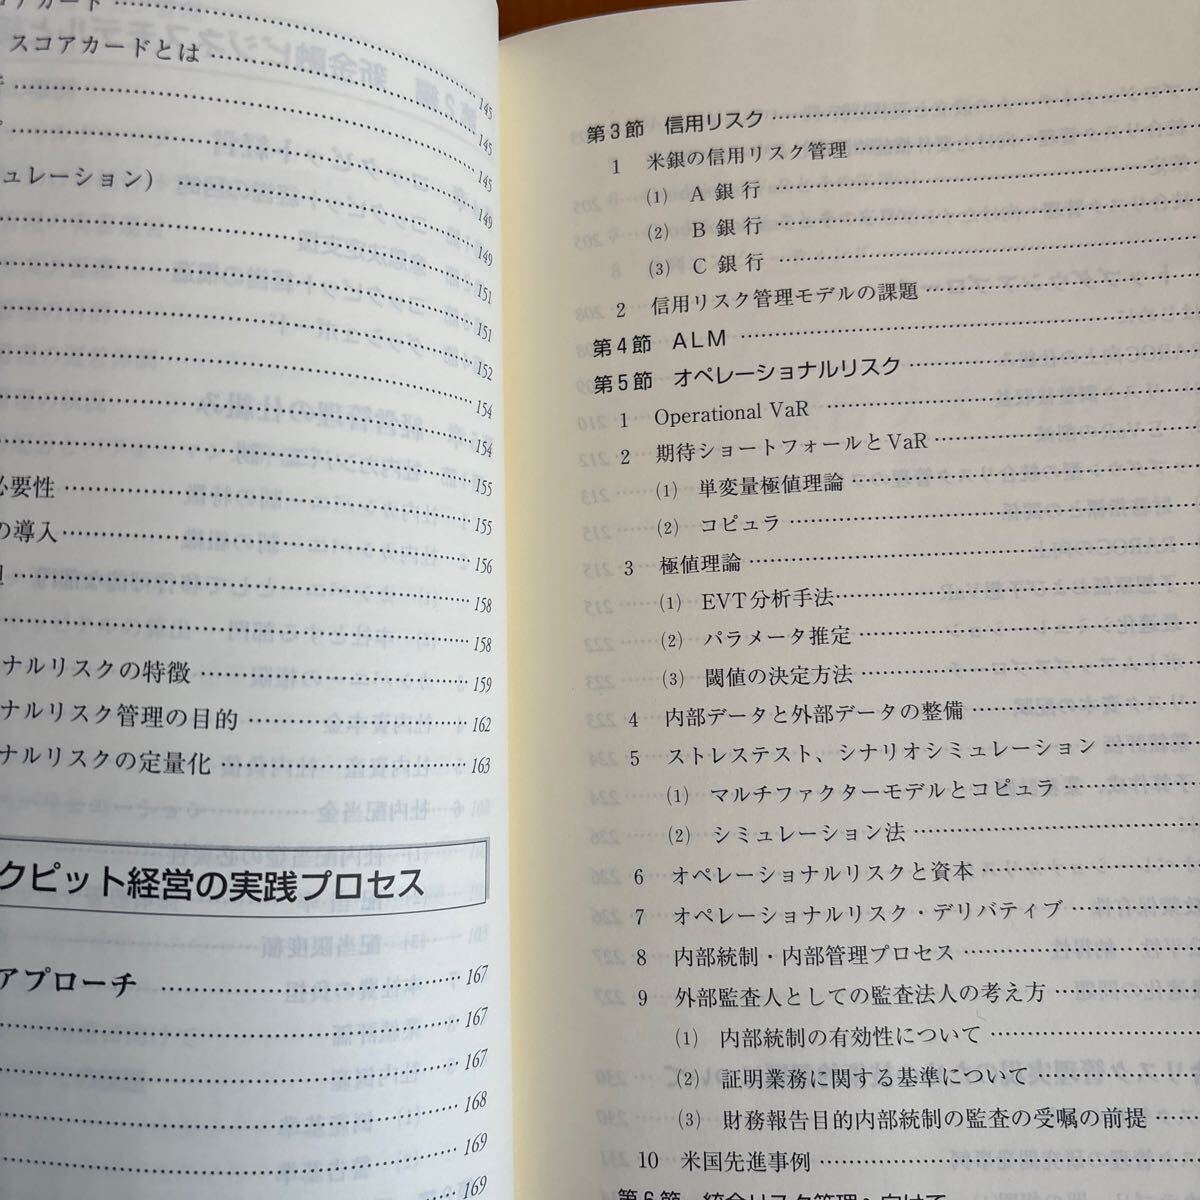 スコアカードとは 145
145
145
ュレーション) 149
149
151
151
152
154
154
必要性 155
の導入 155
156
158
158
ナルリスクの特徴 159
ナルリスク管理の目的 162
ナルリスクの定量化 163
クピット経営の実践プロセス
アプローチ 167
167
167
168
169
169
第3節 信用リスク
1 米銀の信用リスク管理
(1) A 銀行
(2) B 銀行
(3) C 銀行
2 信用リスク管理モデルの課題
第4節 ALM
第5節 オペレーショナルリスク
1 Operational VaR
2 期待ショートフォールとVaR
(1) 単変量極値理論
(2) コピュラ
3 極値理論
(1) EVT分析手法
(2) パラメータ推定
(3) 閾値の決定方法
4 内部データと外部データの整備
5 ストレステスト、シナリオシミュレーション
(1) マルチファクターモデルとコピュラ
(2) シミュレーション法
6 オペレーショナルリスクと資本
7 オペレーショナルリスク・デリバティブ
8 内部統制・内部管理プロセス
9 外部監査人としての監査法人の考え方
(1) 内部統制の有効性について
(2) 証明業務に関する基準について
(3) 財務報告目的内部統制の監査の受嘱の前提
10 米国先進事例
第6節 統合リスク管理へ向けて